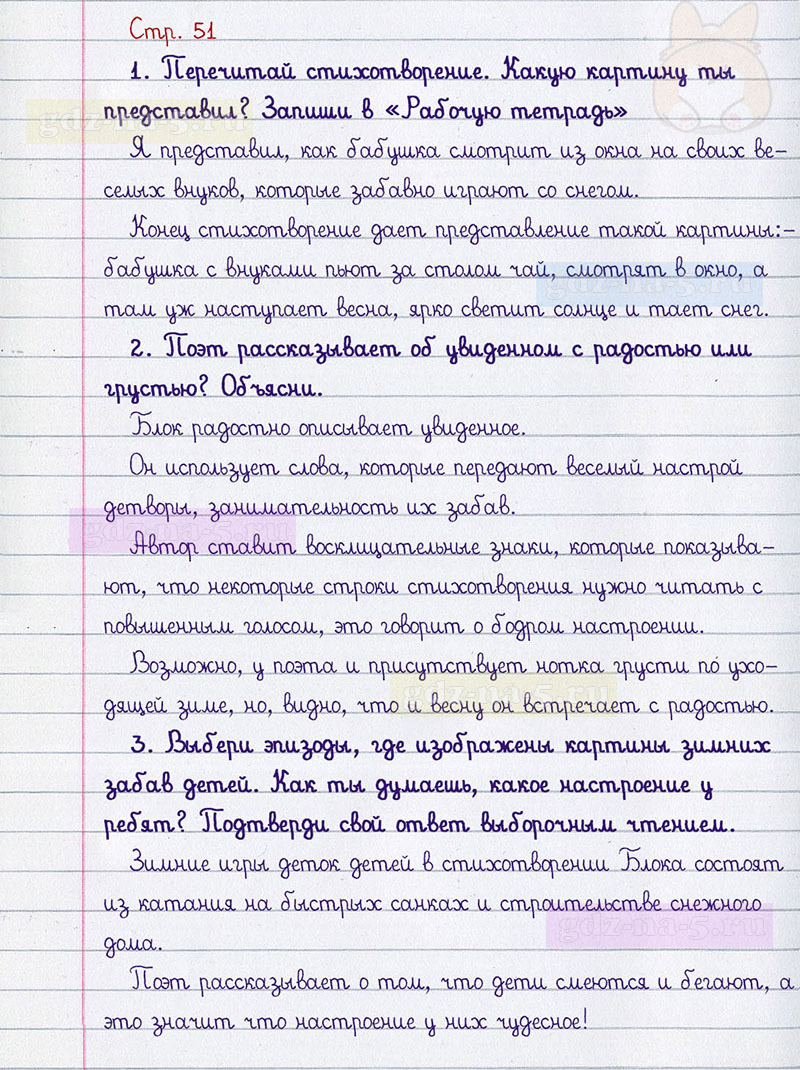 Стр. 51
1. Перечитай стихотворение. Какую картину ты
представил? Запиши в «Рабочую тетрадь»
gdz-na-5.ru
Я представил, как бабушка смотрит из окна на своих ве-
селых внуков, которые забавно играют со снегом.
Конец стихотворение дает представление такой картины:-
бабушка с внуками пьют за столом чай, смотрят в окно, а
gdz-na-5.ru
там уж наступает весна, ярко светит солнце и тает снег.
2. Поэт рассказывает об увиденном с радостью или
грустью? Объясни.
Блок радостно описывает увиденное.
Он использует слова, которые передают веселый настрой
детворы, занимательность их забав.
gdz-na-5.ru
Автор ставит восклицательные знаки, которые показыва-
ют, что некоторые строки стихотворения нужно читать с
повышенным голосом, это говорит о бодром настроении.
Возможно, у поэта и присутствует нотка грусти по ухо-
gdz-na-5.ru
дящей зиме, но, видно, что и весну он встречает с радостью.
3. Выбери эпизоды, где изображены картины зимних
забав детей. Как ты думаешь, какое настроение у
ребят? Подтверди свой ответ выборочным чтением.
Зимние игры деток детей в стихотворении Блока состоят
из катания на быстрых санках и строительстве снежного
gdz-na-5.ru
дома.
Поэт рассказывает о том, что дети смеются и бегают, а
это значит что настроение у них чудесное!